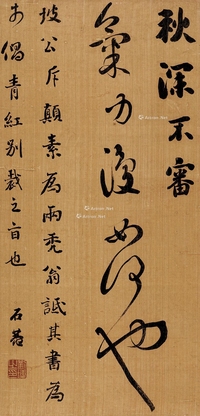 秋深不審
氣力復如何也
坡公斥顛素為兩禿翁詆其書為
市倡青紅別裁之旨也 石菴